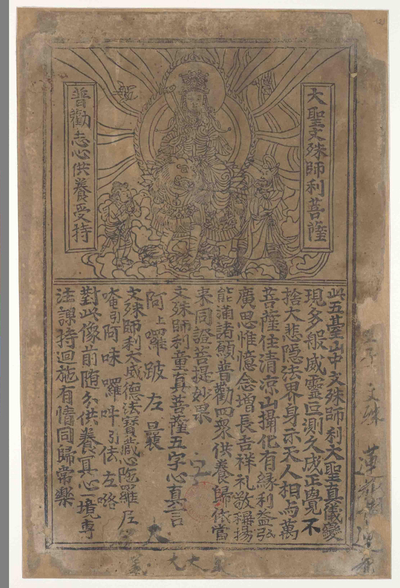 大聖文殊師利菩薩
普勸志心供養受持
此五臺山中文殊師利大聖真儀變
現多般威靈叵測久成正覺不
捨大悲隱法界身示天人相與萬
菩薩住清涼山攝化有緣利益弘
廣思惟憶念增長吉祥礼敬稱揚
能滿諸願普勸四眾供養歸依當
來同證菩提妙果
文殊師利童真菩薩五字心真言
阿上囉跛左曩
文殊師利大威德法寶藏心陀羅尼
唵引阿味囉吽引佉左路
對此像前隨分供養冥心一境專
注課持迴施有情同歸常樂
文殊